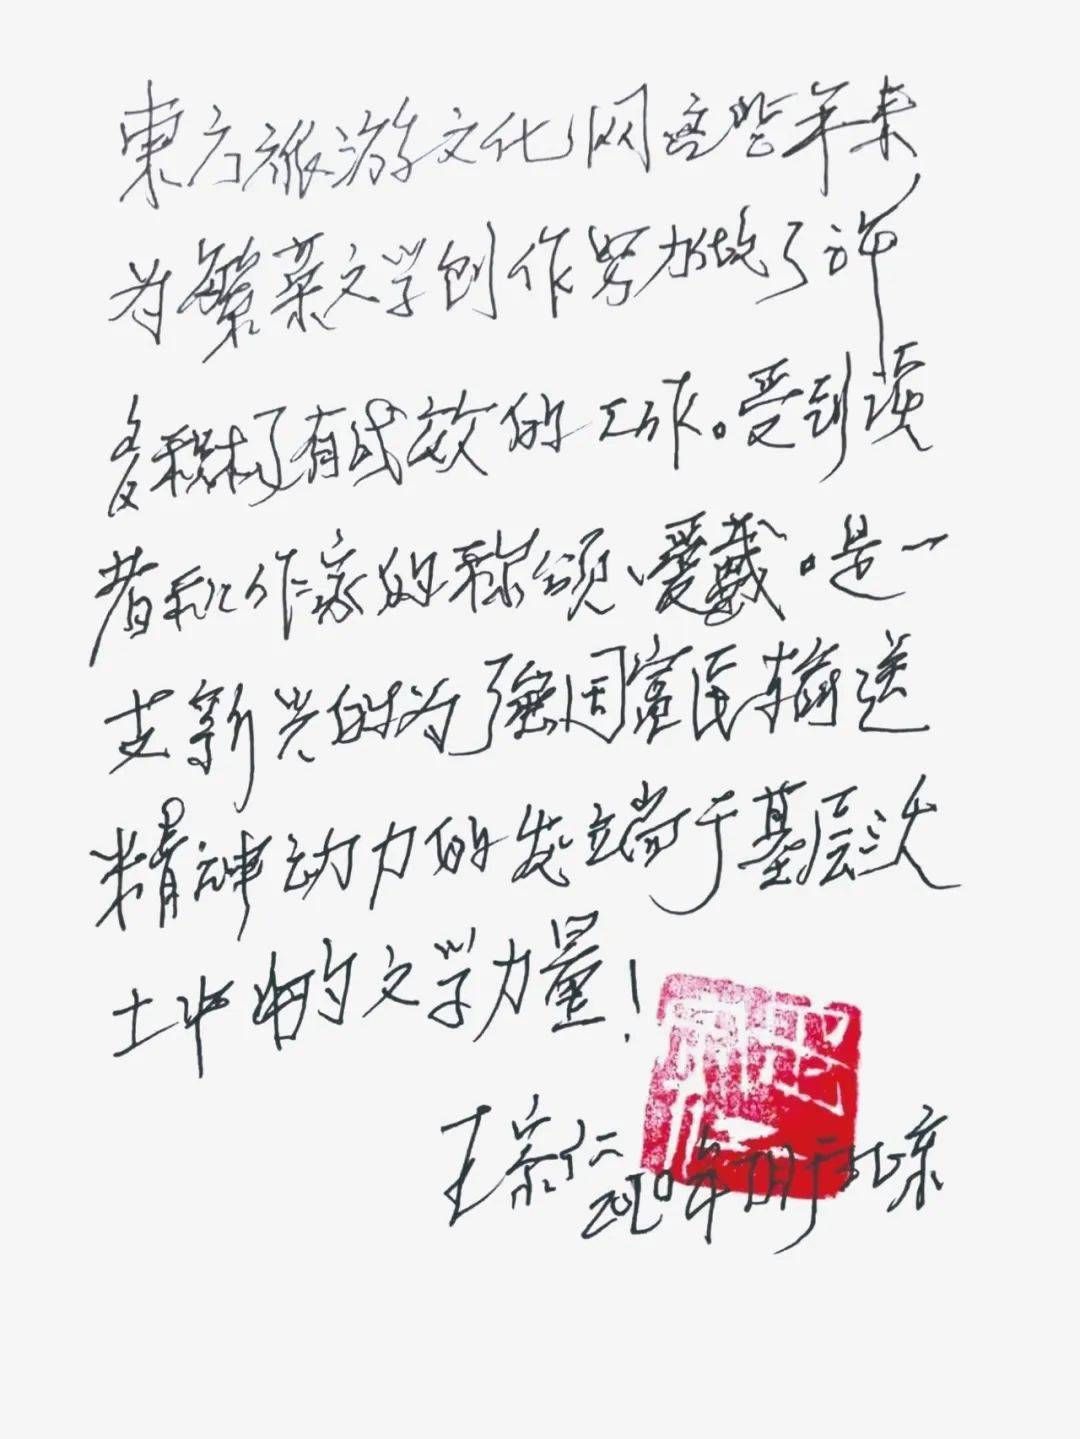 東方旅游文化网这些年来
为繁荣文学创作努力做了许
多积极有成效的工作。受到读
者和作家的称颂、爱戴。是一
支新兴的为强国富民输送
精神动力的发端于基层沃
土中的文学力量！
王宗仁 2020年 月于北京